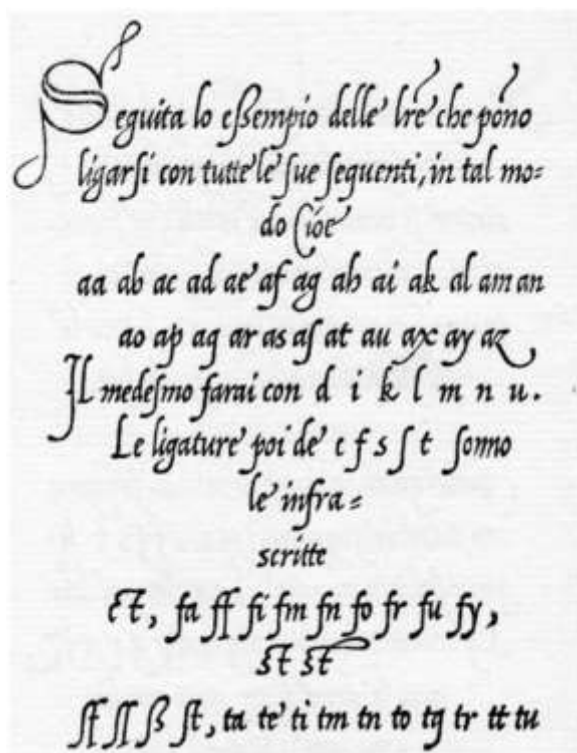 Seguita lo eſßempio delle l̃re che põno
ligarſi con tutte le ſue ſequenti, in tal mo=
do Cioe
aa ab ac ad ae af ag ah ai ak al am an
ao ap aq ar as aſ at au ax ay az
Il medeſmo farai con d i k l m n u.
Le ligature poi de c f s ſ t ſonno
le infra=
scritte
ct, fa ff fi fm fn fo fr fu fy,
st st
ſf ſſ ß ſt, ta te ti tm tn to tq tr tt tu